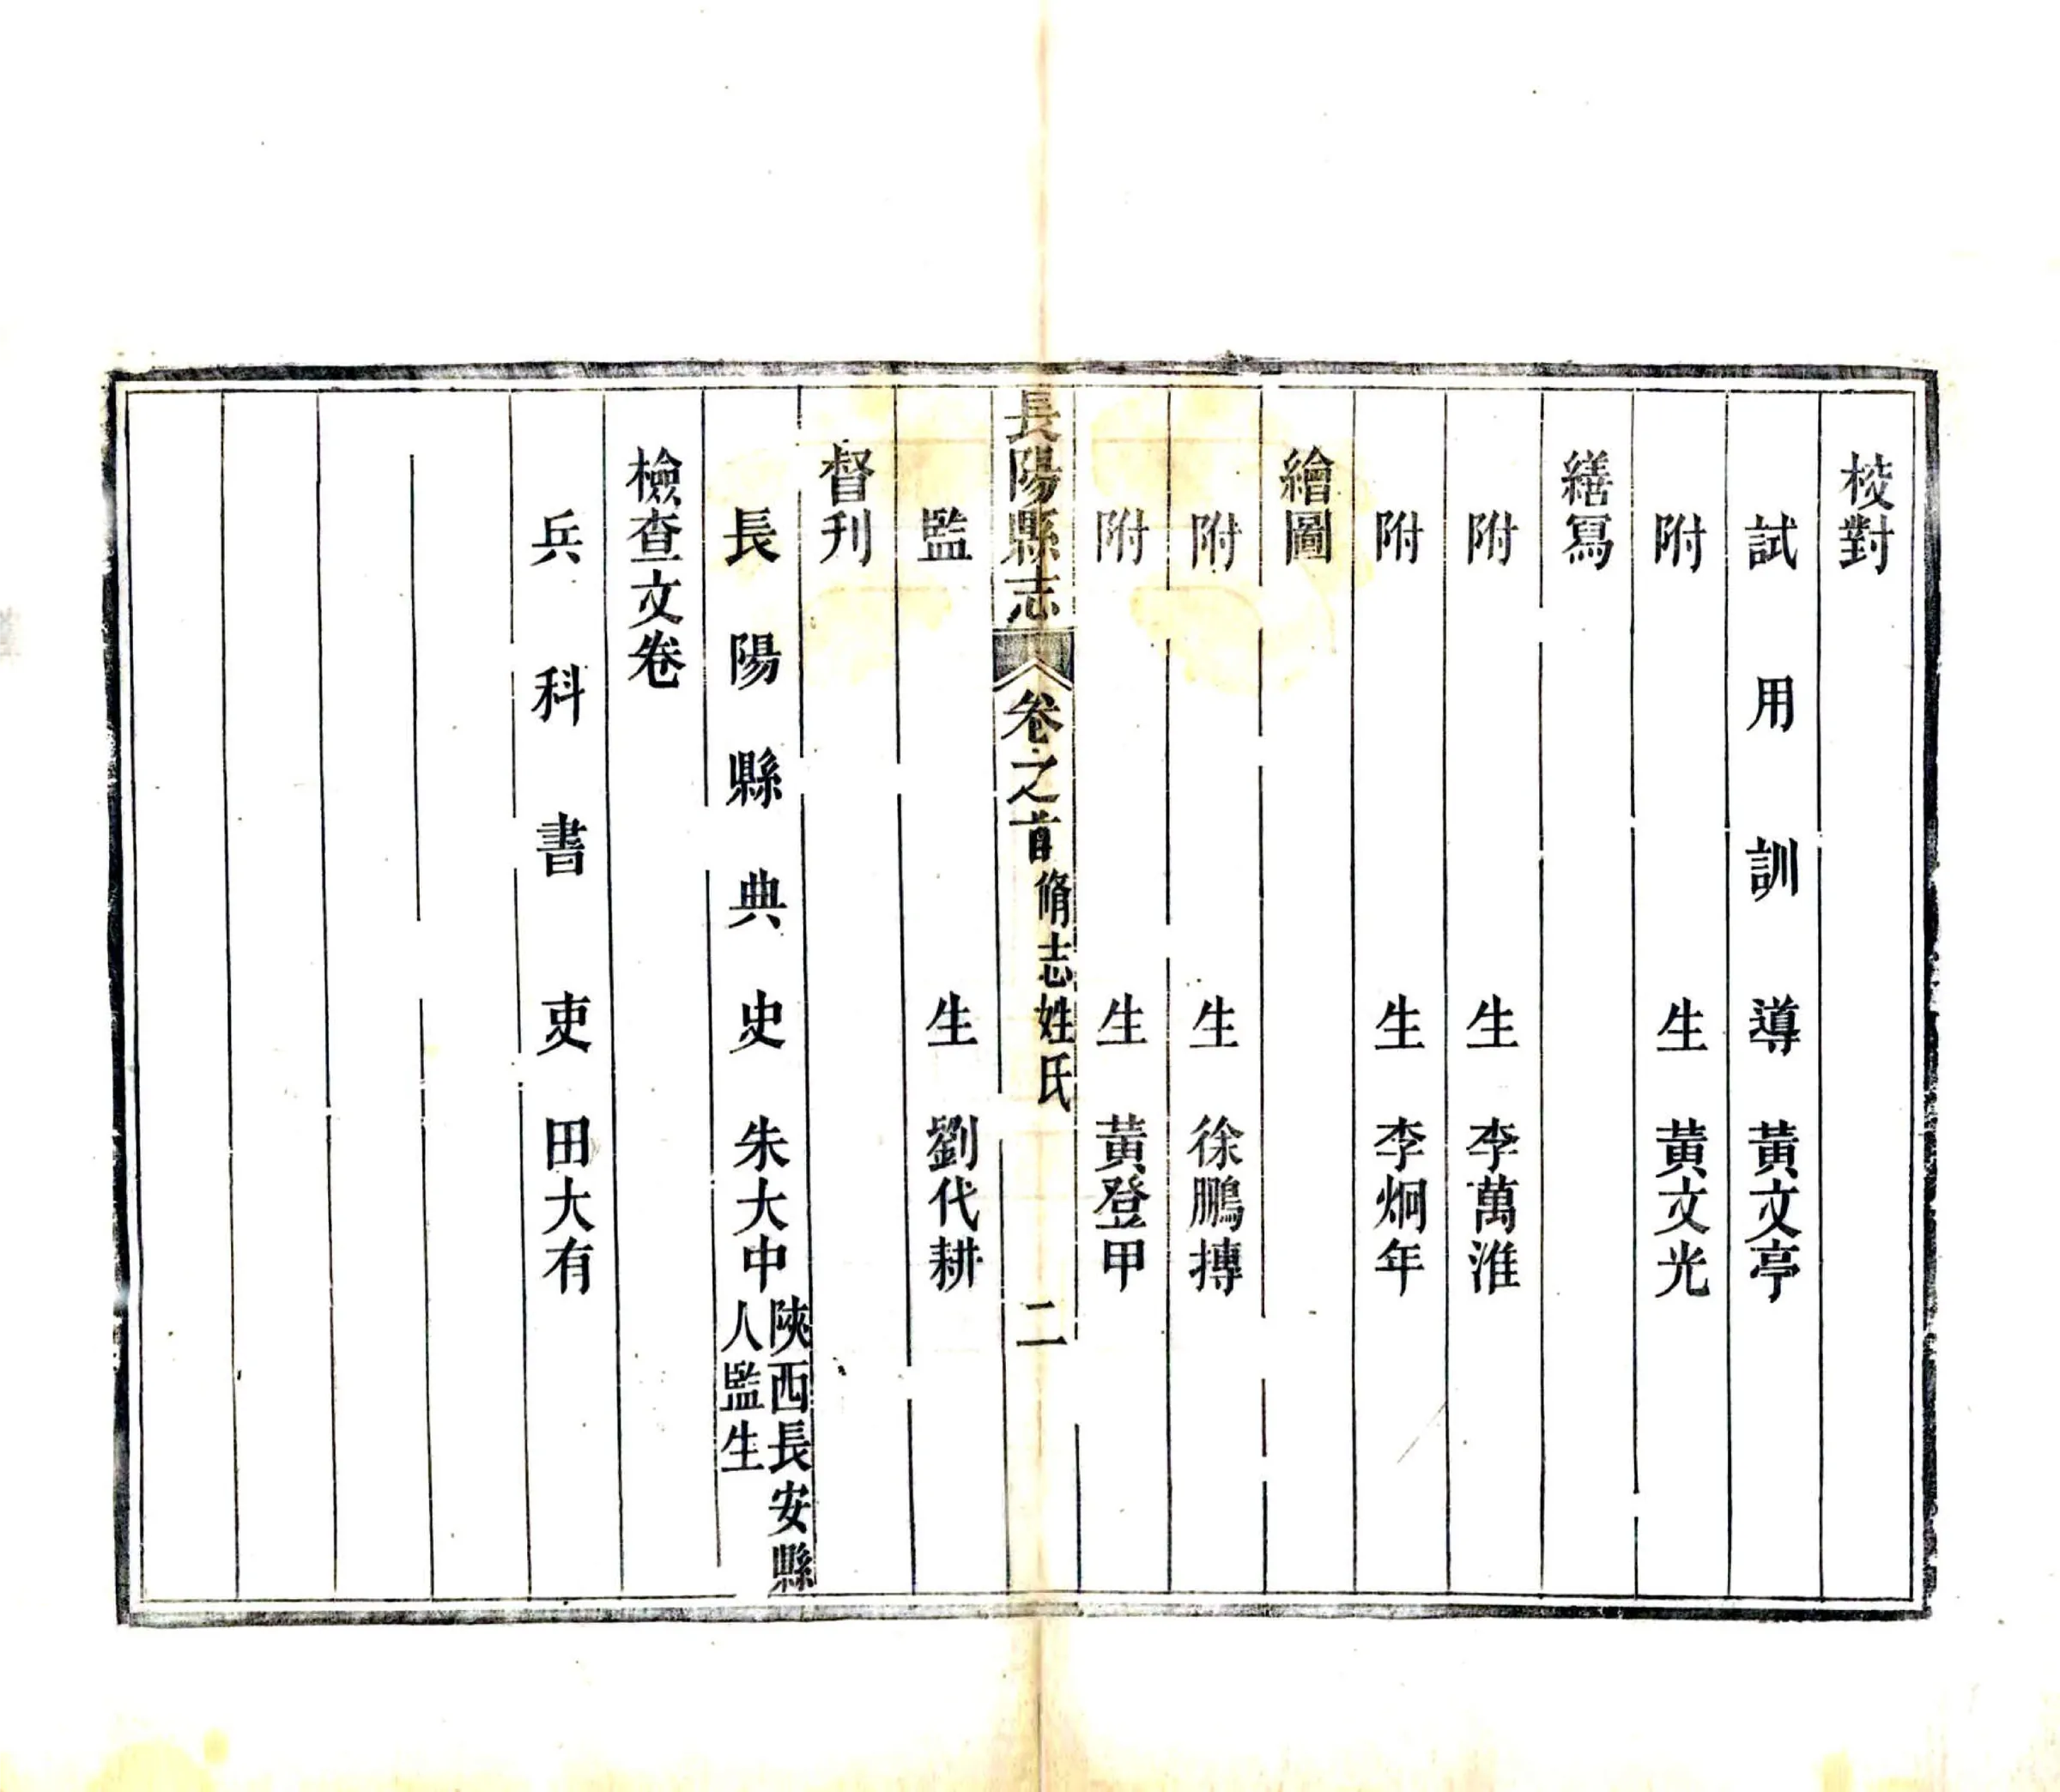 校對
試用訓導 黃文亭
附生 黃文光
繕寫
附生 李萬淮
附生 李炯年
繪圖
附生 徐鵬摶
附生 黃登甲
長陽縣志 卷之首 脩志姓氏 二
監生 劉代耕
督刋
長陽縣典史 朱大中 陝西長安縣
人監生
檢查文卷
兵科書吏 田大有